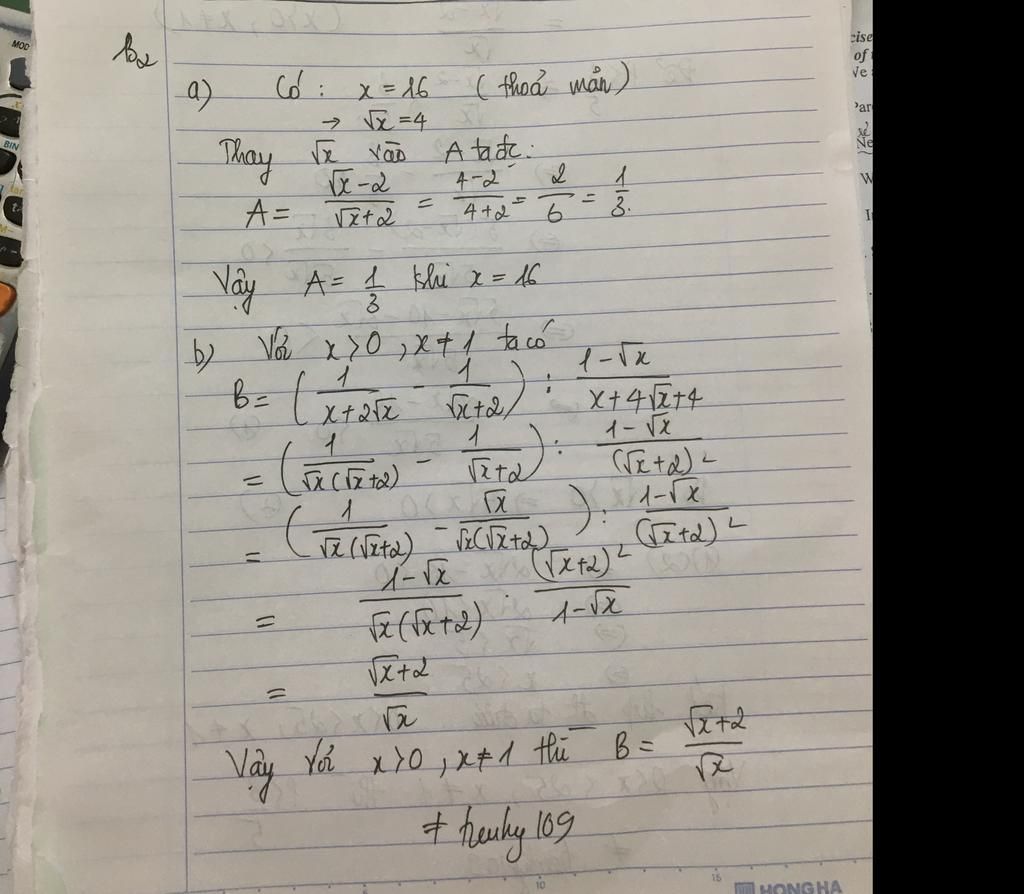 b2
a) Có : x = 16 (thoả mãn)
→ √x = 4
Thay √x vào A ta đc:
A = (√x - 2)/(√x + 2) = (4-2)/(4+2) = 2/6 = 1/3.
Vậy A = 1/3 khi x = 16
b) Với x > 0 , x ≠ 1 ta có
B = (1/(x+2√x) - 1/(√x+2)) : (1-√x)/(x+4√x+4)
= (1/(√x(√x+2)) - 1/(√x+2)) : (1-√x)/(√x+2)²
= (1/(√x(√x+2)) - √x/(√x(√x+2))) : (1-√x)/(√x+2)²
= (1-√x)/(√x(√x+2)) . (√x+2)²/(1-√x)
= (√x+2)/√x
Vậy với x > 0 , x ≠ 1 thì B = (√x+2)/√x
10
15
HONG HA